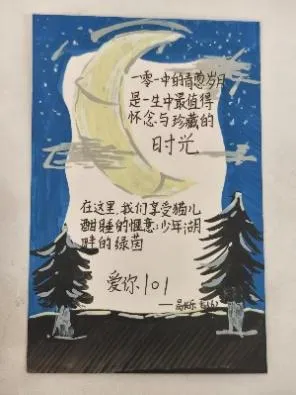 一零一中的青葱岁月
是一生中最值得
怀念与珍藏的
时光
在这里,我们享受猫儿
酣睡的惬意;少年湖
畔的绿茵
爱你101